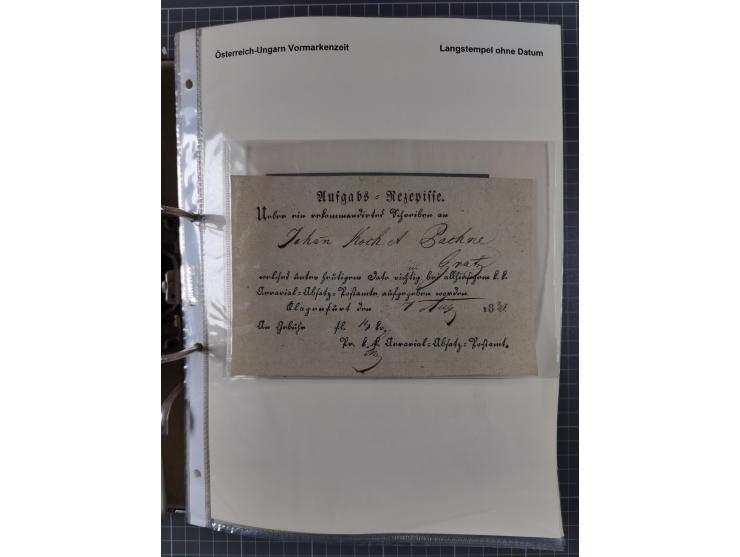 Österreich-Ungarn Vormarkenzeit Langstempel ohne Datum
Aufgabs = Rezepisse.
Ueber ein rekommandirtes Schreiben an
Johan Koch
Gratz
welches unter heutigem Dato richtig bei allhiesigem k. k.
Aerarial=Absatz=Postamte aufgegeben worden.
Klagenfurt den 7 Aug 18
An Gebühr fl. 4 kr.
Pr. k. k. Aerarial=Absatz=Postamt.